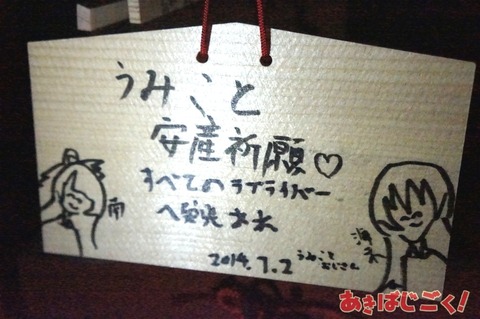 うみこと
安産祈願♡
すべてのラブライバー
へ
南
海未
2014.7.2
うみことおじさん
あきばじごく!